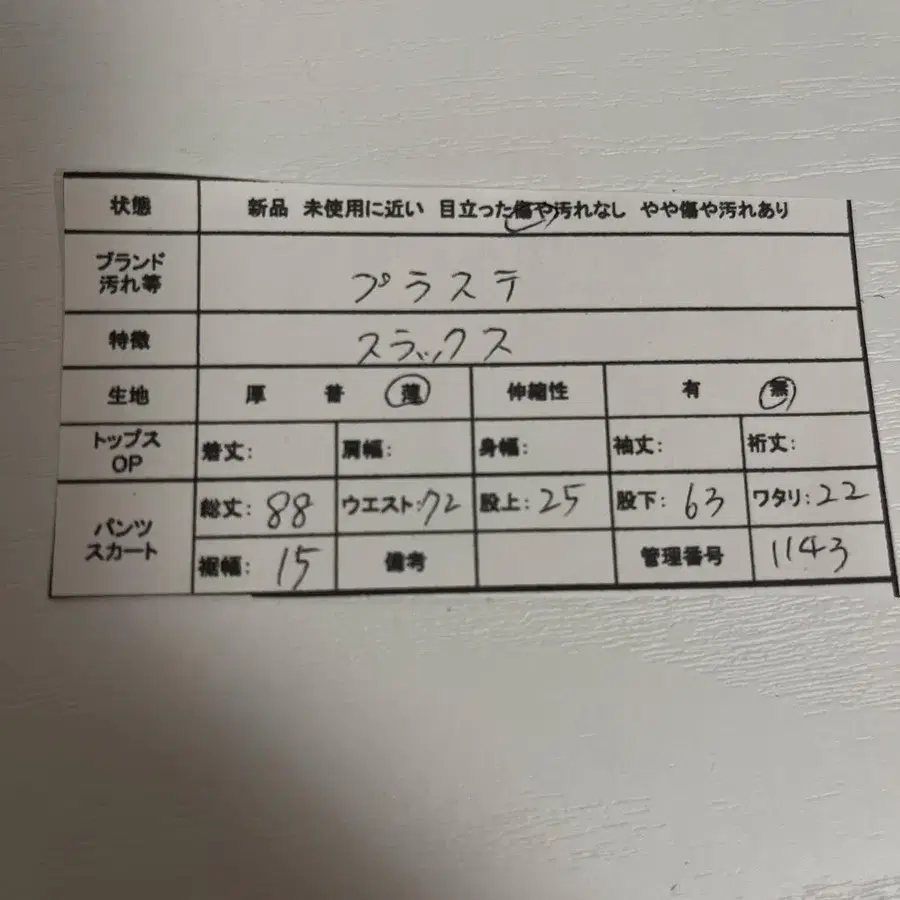 状態 新品 未使用に近い 目立った傷や汚れなし やや傷や汚れあり
ブランド
汚れ等 プラステ
特徴 スラックス
生地 厚 普 薄 伸縮性 有 無
トップス
OP 着丈: 肩幅: 身幅: 袖丈: 裄丈:
パンツ
スカート 総丈: 88 ウエスト: 72 股上: 25 股下: 63 ワタリ: 22
裾幅: 15 備考 管理番号 1143